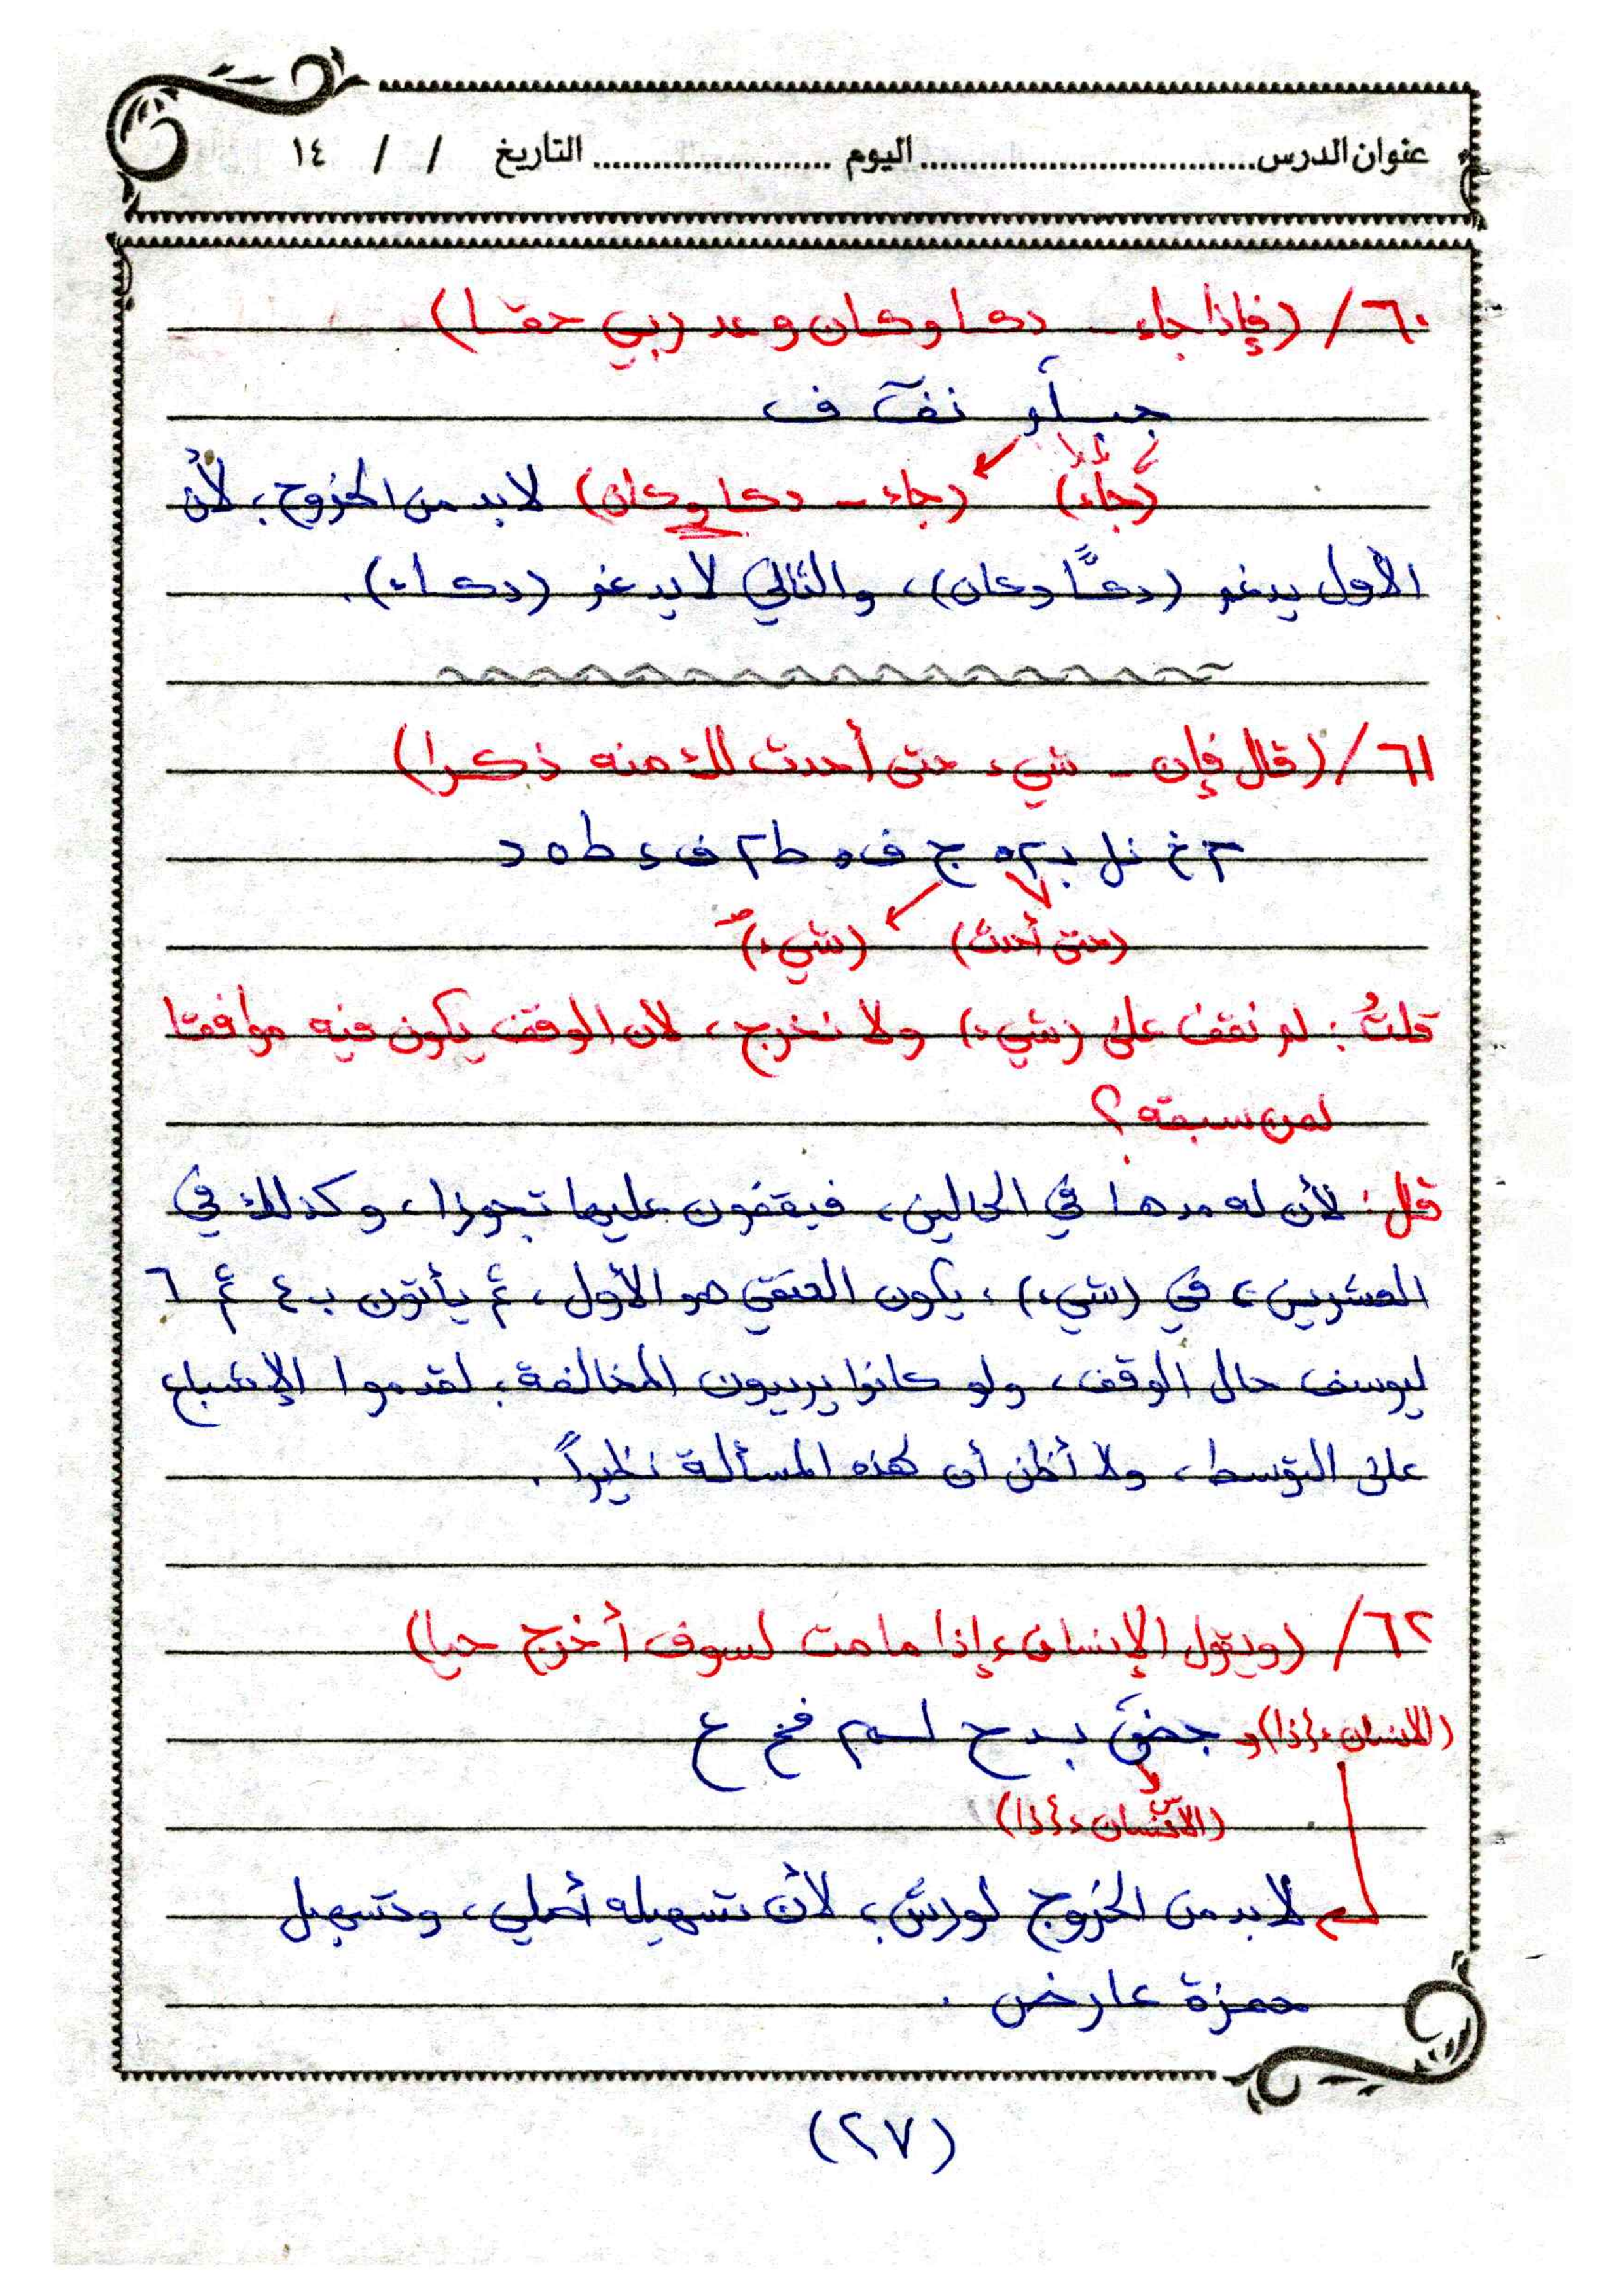 عنوان الدرس .............................. اليوم ........................ التاريخ / / ١٤
٦٠/ (فإذا جاء - دكا وكان وعد ربي حقا)
نف ف
(جاء) (جاء - دكا وكان) لابد من الخروج، لأن
الأول يدغم (دكًّا وكان)، والتالي لا يدغم (دكاء).
٦١/ (قال فإن - شيء حتى أحدث لك منه ذكرا)
(حتى أحدث) (شيء)
قلتُ: لم نقف على (شيء) ولا نخرج، لأن الوقف يكون فيه موافقا
لمن سبقه؟
قل: لأن له مدها في الحالين، فيقفون عليها تجوزا، وكذلك في
العشرين، في (شيء)، يكون العتقي هو الأول، ثم يأتون ب ٤ ثم ٦
ليوسف حال الوقف، ولو كانوا يريدون المخالفة، لقدموا الإشباع
على التوسط، ولا أظن أن لهذه المسألة نظيراً.
٦٢/ (ويقول الإنسان ءإذا ما مت لسوف أخرج حيا)
(الانسان ءإذا) و
(الانسان ءإذا)
لابد من الخروج لورش، لأن تسهيله أصلي، وتسهيل
حمزة عارض.
(٢٧)